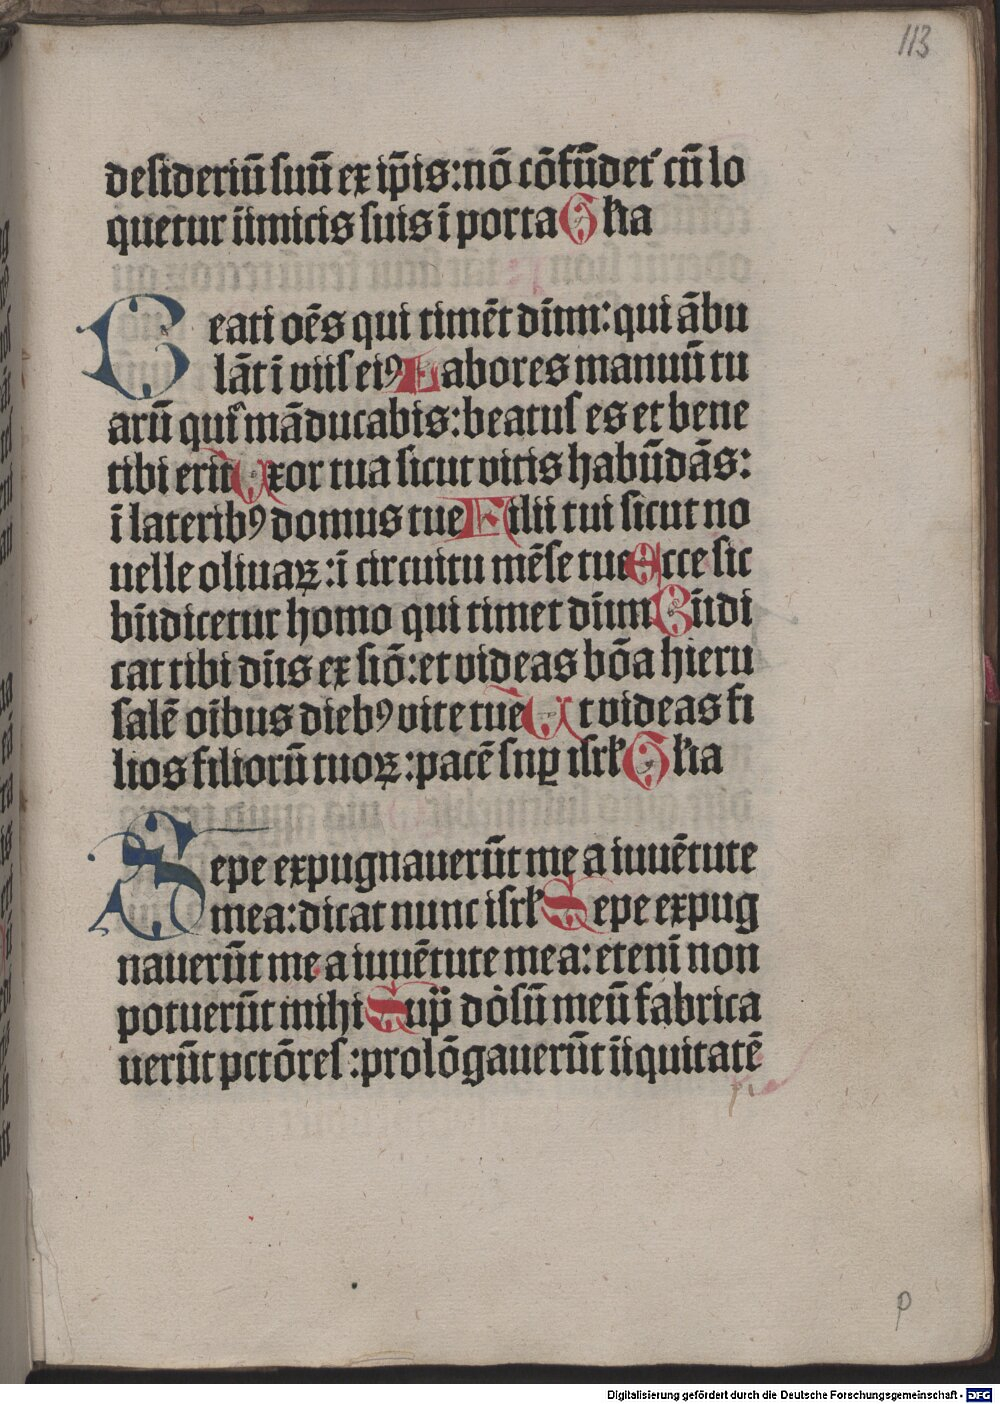 113
desideriū suū ex ip̄is: nō cōfūdet᷑ cū lo
quetur īimicis suis ī porta Gl̄ia
Beati oēs qui timēt dn̄m: qui ābu
lāt ī viis eiꝰ Labores manuū tu
arū qui᷑ māducabis: beatus es et bene
tibi erit Uxor tua sicut vitis habūdās:
ī lateribꝰ domus tue Filii tui sicut no
uelle oliuaꝝ: ī circuitu mēse tue Ecce sic
bn̄dicetur homo qui timet dn̄m Bn̄di
cat tibi dn̄s ex siō: et videas bōa hieru
salē oībus diebꝰ vite tue Ut videas fi
lios filiorū tuoꝝ: pacē suꝑ isrl̄ Gl̄ia
Sepe expugnauerūt me a iuuētute
mea: dicat nunc isrl̄ Sepe expug
nauerūt me a iuuētute mea: etenī non
potuerūt mihi Sup̄ dosū meū fabrica
uerūt pctōres: prolōgauerūt īiquitatē
p
Digitalisierung gefördert durch die Deutsche Forschungsgemeinschaft - DFG